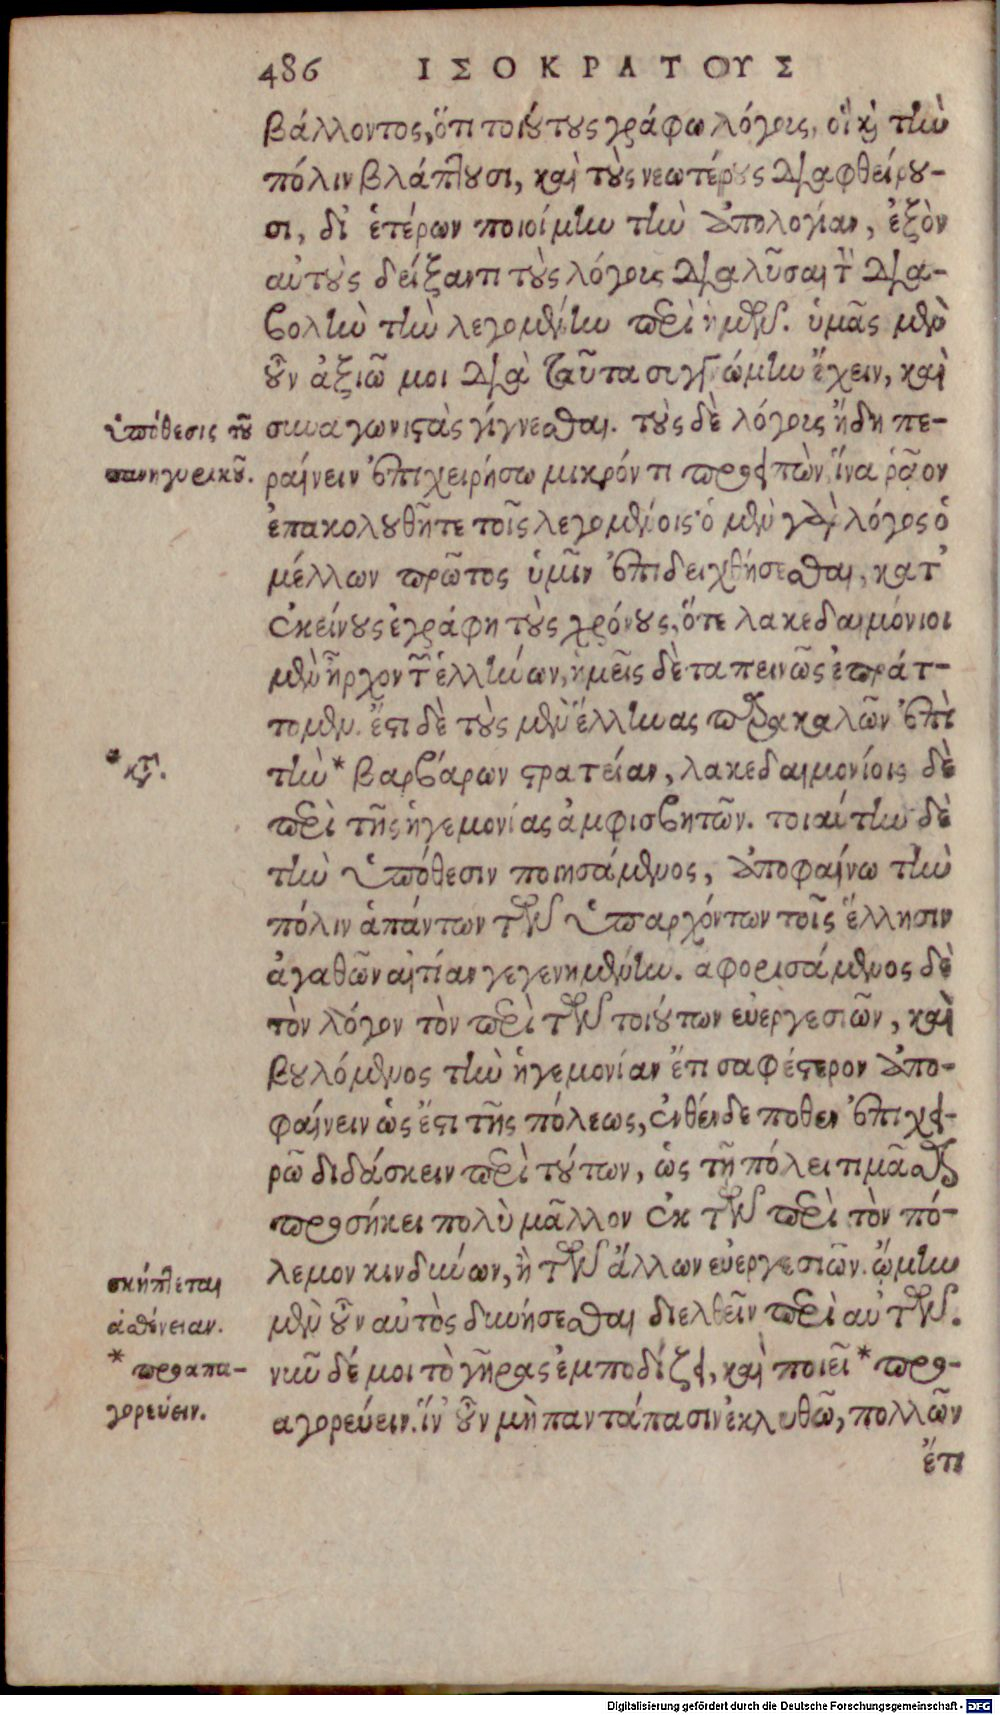 486 ΙΣΟΚΡΑΤΟΥΣ
βάλλοντος, ὅτι τοιούτους γράφω λόγους, οἳ καὶ τὴν
πόλιν βλάπτουσι, καὶ τοὺς νεωτέρους διαφθείρου-
σι, δι' ἑτέρων ποιοίμην τὴν ἀπολογίαν, ἐξὸν
αὐτοὺς δείξαντι τοὺς λόγους διαλῦσαι τὴν δια-
βολὴν τὴν λεγομένην περὶ ἡμῶν. ὑμᾶς μὲν
οὖν ἀξιῶ μοι διὰ ταῦτα συγγνώμην ἔχειν, καὶ
ὑπόθεσις τοῦ
συναγωνιστὰς γίγνεσθαι. τοὺς δὲ λόγους ἤδη πε-
πανηγυρικοῦ.
ραίνειν ἐπιχειρήσω μικρόν τι προειπὼν, ἵνα ῥᾷον
ἐπακολουθῆτε τοῖς λεγομένοις· ὁ μὲν γὰρ λόγος ὁ
μέλλων πρῶτος ὑμῖν ἐπιδειχθήσεσθαι, κατ'
ἐκείνους ἐγράφη τοὺς χρόνους, ὅτε λακεδαιμόνιοι
μὲν ἦρχον τῶν ἑλλήνων, ἡμεῖς δὲ ταπεινῶς ἐπράτ-
τομεν. ἔστι δὲ τοὺς μὲν ἕλληνας παρακαλῶν ἐπὶ
* κτ.
τὴν * βαρβάρων στρατείαν, λακεδαιμονίοις δὲ
περὶ τῆς ἡγεμονίας ἀμφισβητῶν. τοιαύτην δὲ
τὴν ὑπόθεσιν ποιησάμενος, ἀποφαίνω τὴν
πόλιν ἁπάντων τῶν ὑπαρχόντων τοῖς ἕλλησιν
ἀγαθῶν αἰτίαν γεγενημένην. ἀφορισάμενος δὲ
τὸν λόγον τὸν περὶ τῶν τοιούτων εὐεργεσιῶν, καὶ
βουλόμενος τὴν ἡγεμονίαν ἔτι σαφέστερον ἀπο-
φαίνειν ὡς ἔστι τῆς πόλεως, ἐνθένδε ποθεν ἐπιχει-
ρῶ διδάσκειν περὶ τούτων, ὡς τῇ πόλει τιμᾶσθαι
προσήκει πολὺ μᾶλλον ἐκ τῶν περὶ τὸν πό-
λεμον κινδύνων, ἢ τῶν ἄλλων εὐεργεσιῶν. ᾤμην
σκήπτεται
ἀσθένειαν.
μὲν οὖν αὐτὸς δυνήσεσθαι διελθεῖν περὶ αὐτῶν.
* προαπα-
νῦν δέ μοι τὸ γῆρας ἐμποδίζει, καὶ ποιεῖ * προ-
γορεύειν.
αγορεύειν. ἵν' οὖν μὴ παντάπασιν ἐκλυθῶ, πολλῶν
ἔτι
Digitalisierung gefördert durch die Deutsche Forschungsgemeinschaft - DFG